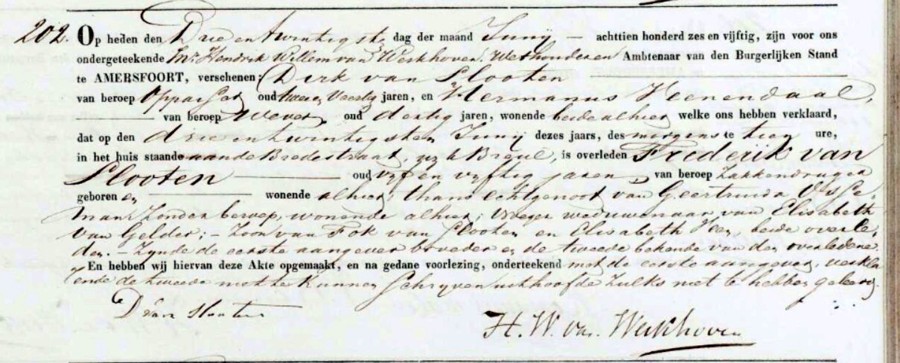 202. Op heden den Drie en twintigste dag der maand Junij – achttien honderd zes en vijftig, zijn voor ons
ondergeteekende Mr Hendrik Willem van Werkhoven, Wethouder en Ambtenaar van den Burgerlijken Stand
te AMERSFOORT, verschenen: Dirk van Slooten
van beroep Oppasser oud twee en Veertig jaren, en Hermanus Veenendaal,
van beroep Wever oud dertig jaren, wonende beide alhier welke ons hebben verklaard,
dat op den drie en twintigsten Junij dezes jaars, des morgens te tien ure,
in het huis staande aan de Bredestraat, wijk B, is overleden Frederik van
Slooten oud vijf en vijftig jaren, van beroep Zakkendrager
geboren en wonende alhier, thans echtgenoot van Geertruida
man, zonder beroep, wonende alhier; vroeger weduwenaar van Elisabeth
van Gelder; – Zoon van Fok van Slooten en Elisabeth Veen, beide overle
den. – Zijnde de eerste aangever broeder en de tweede bekende van den overledene.
En hebben wij hiervan deze Akte opgemaakt, en na gedane voorlezing, onderteekend met de eerste aangever, verkla
rende de tweede niet te kunnen schrijven uit hoofde zulks niet te hebben geleerd.
D van Slooten
H. W. van Werkhoven